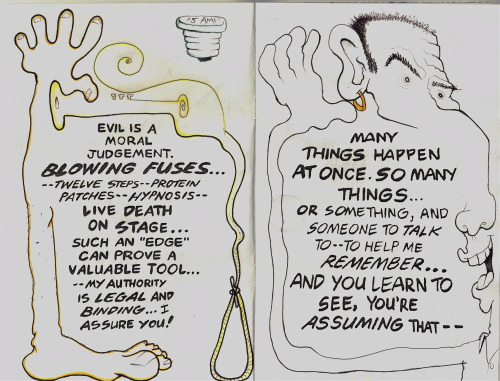 15 AMP
EVIL IS A
MORAL
JUDGEMENT.
BLOWING FUSES...
--TWELVE STEPS--PROTEIN
PATCHES--HYPNOSIS--
LIVE DEATH
ON STAGE...
SUCH AN "EDGE"
CAN PROVE A
VALUABLE TOOL...
--MY AUTHORITY
IS LEGAL AND
BINDING...I
ASSURE YOU!
MANY
THINGS HAPPEN
AT ONCE. SO MANY
THINGS...
OR SOMETHING, AND
SOMEONE TO TALK
TO--TO HELP ME
REMEMBER...
AND YOU LEARN TO
SEE, YOU'RE
ASSUMING THAT--